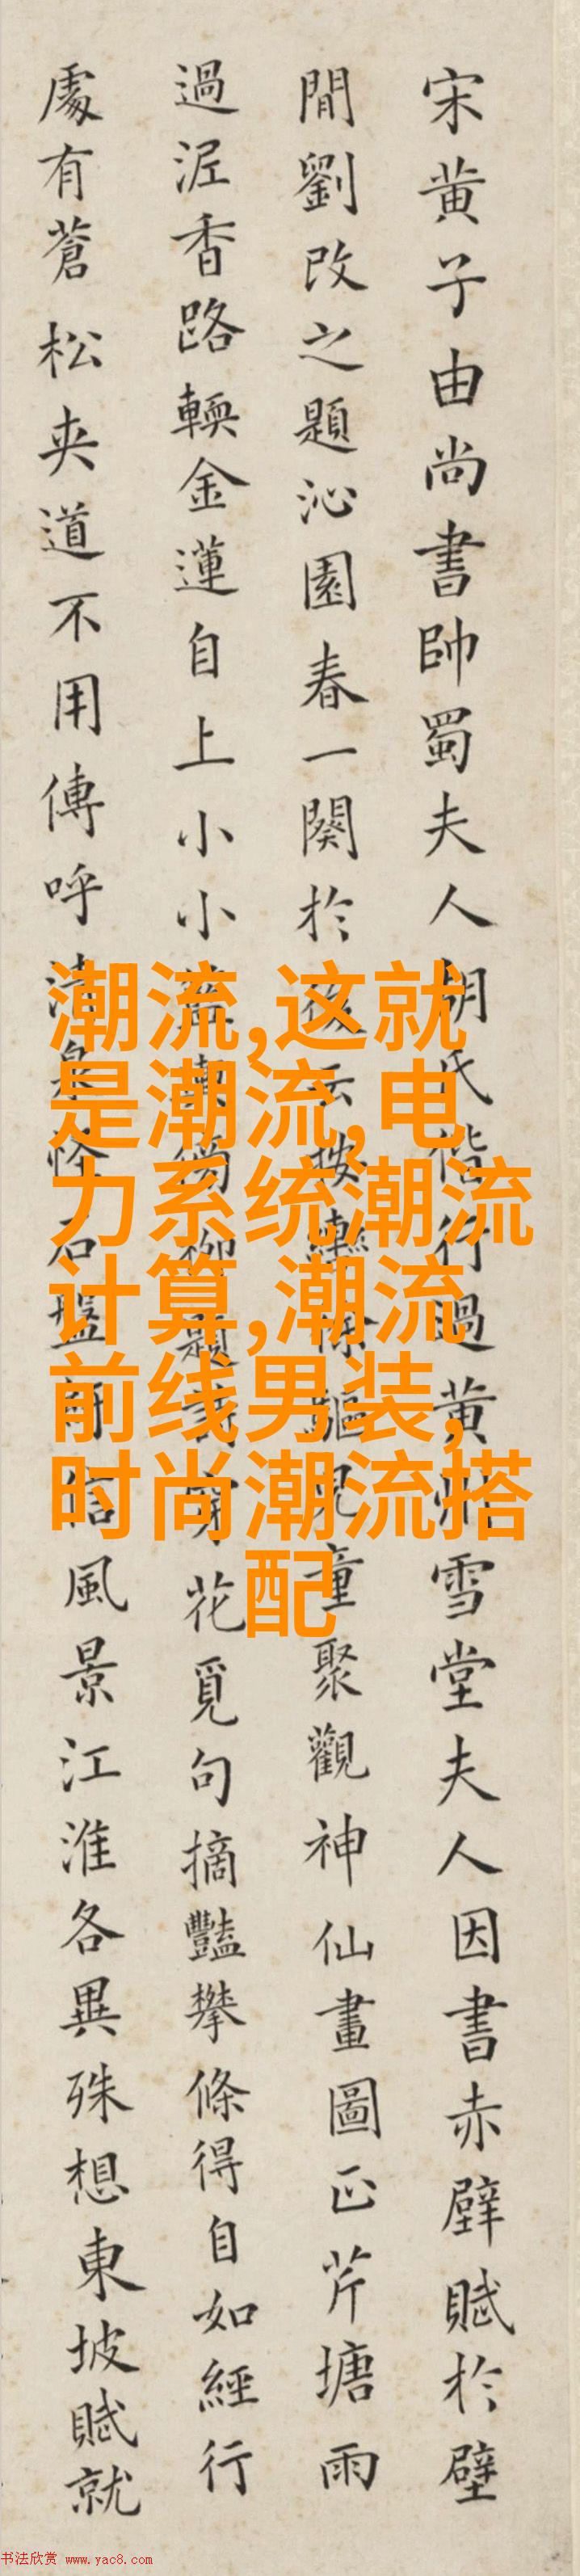 宋黄子由尚書帥蜀夫人胡氏偕行過黄州雪堂夫人因書赤壁賦於壁
間劉改之題沁園春一闋於後云按轡徐驅兒童聚觀神仙畫圖正芹塘雨
過泥香路輭金蓮自上小小籃輿傍柳題詩穿花覓句摘豔攀條得自如經行
處有蒼松夾道不用傳呼清泉怪石盤紆信風景江淮各異殊想東坡賦就
潮流,这就
是潮流,电
力系统潮流
计算,潮流
前线男装,
时尚潮流搭
配
书法欣赏 www.yac8.com